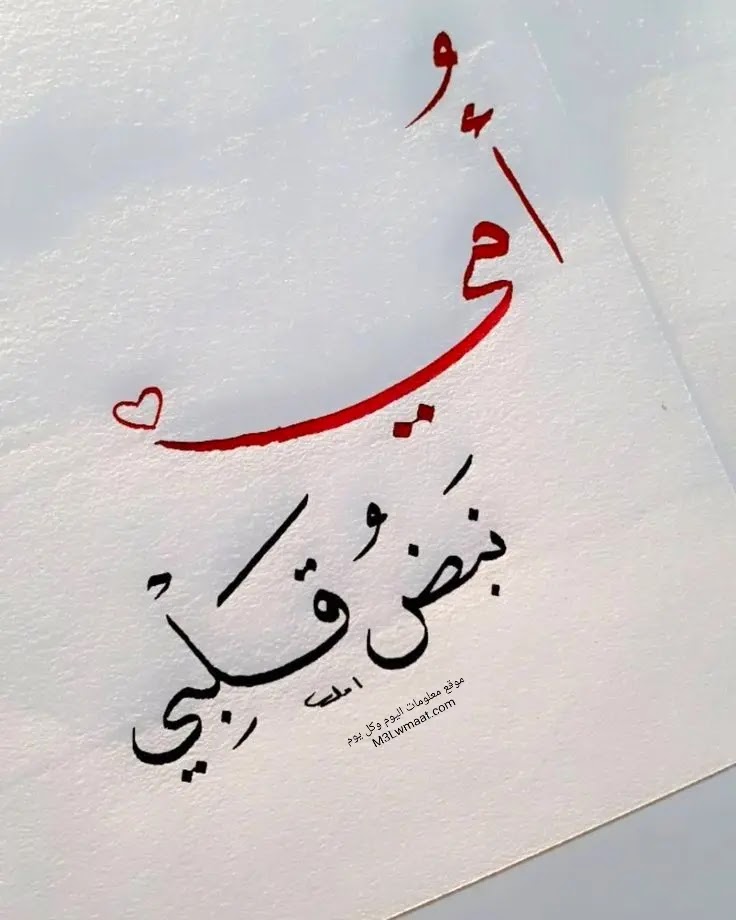 أُمي
نبَضُ قلْبي
موقع معلومات اليوم وكل يوم
M3Lwmaat.com